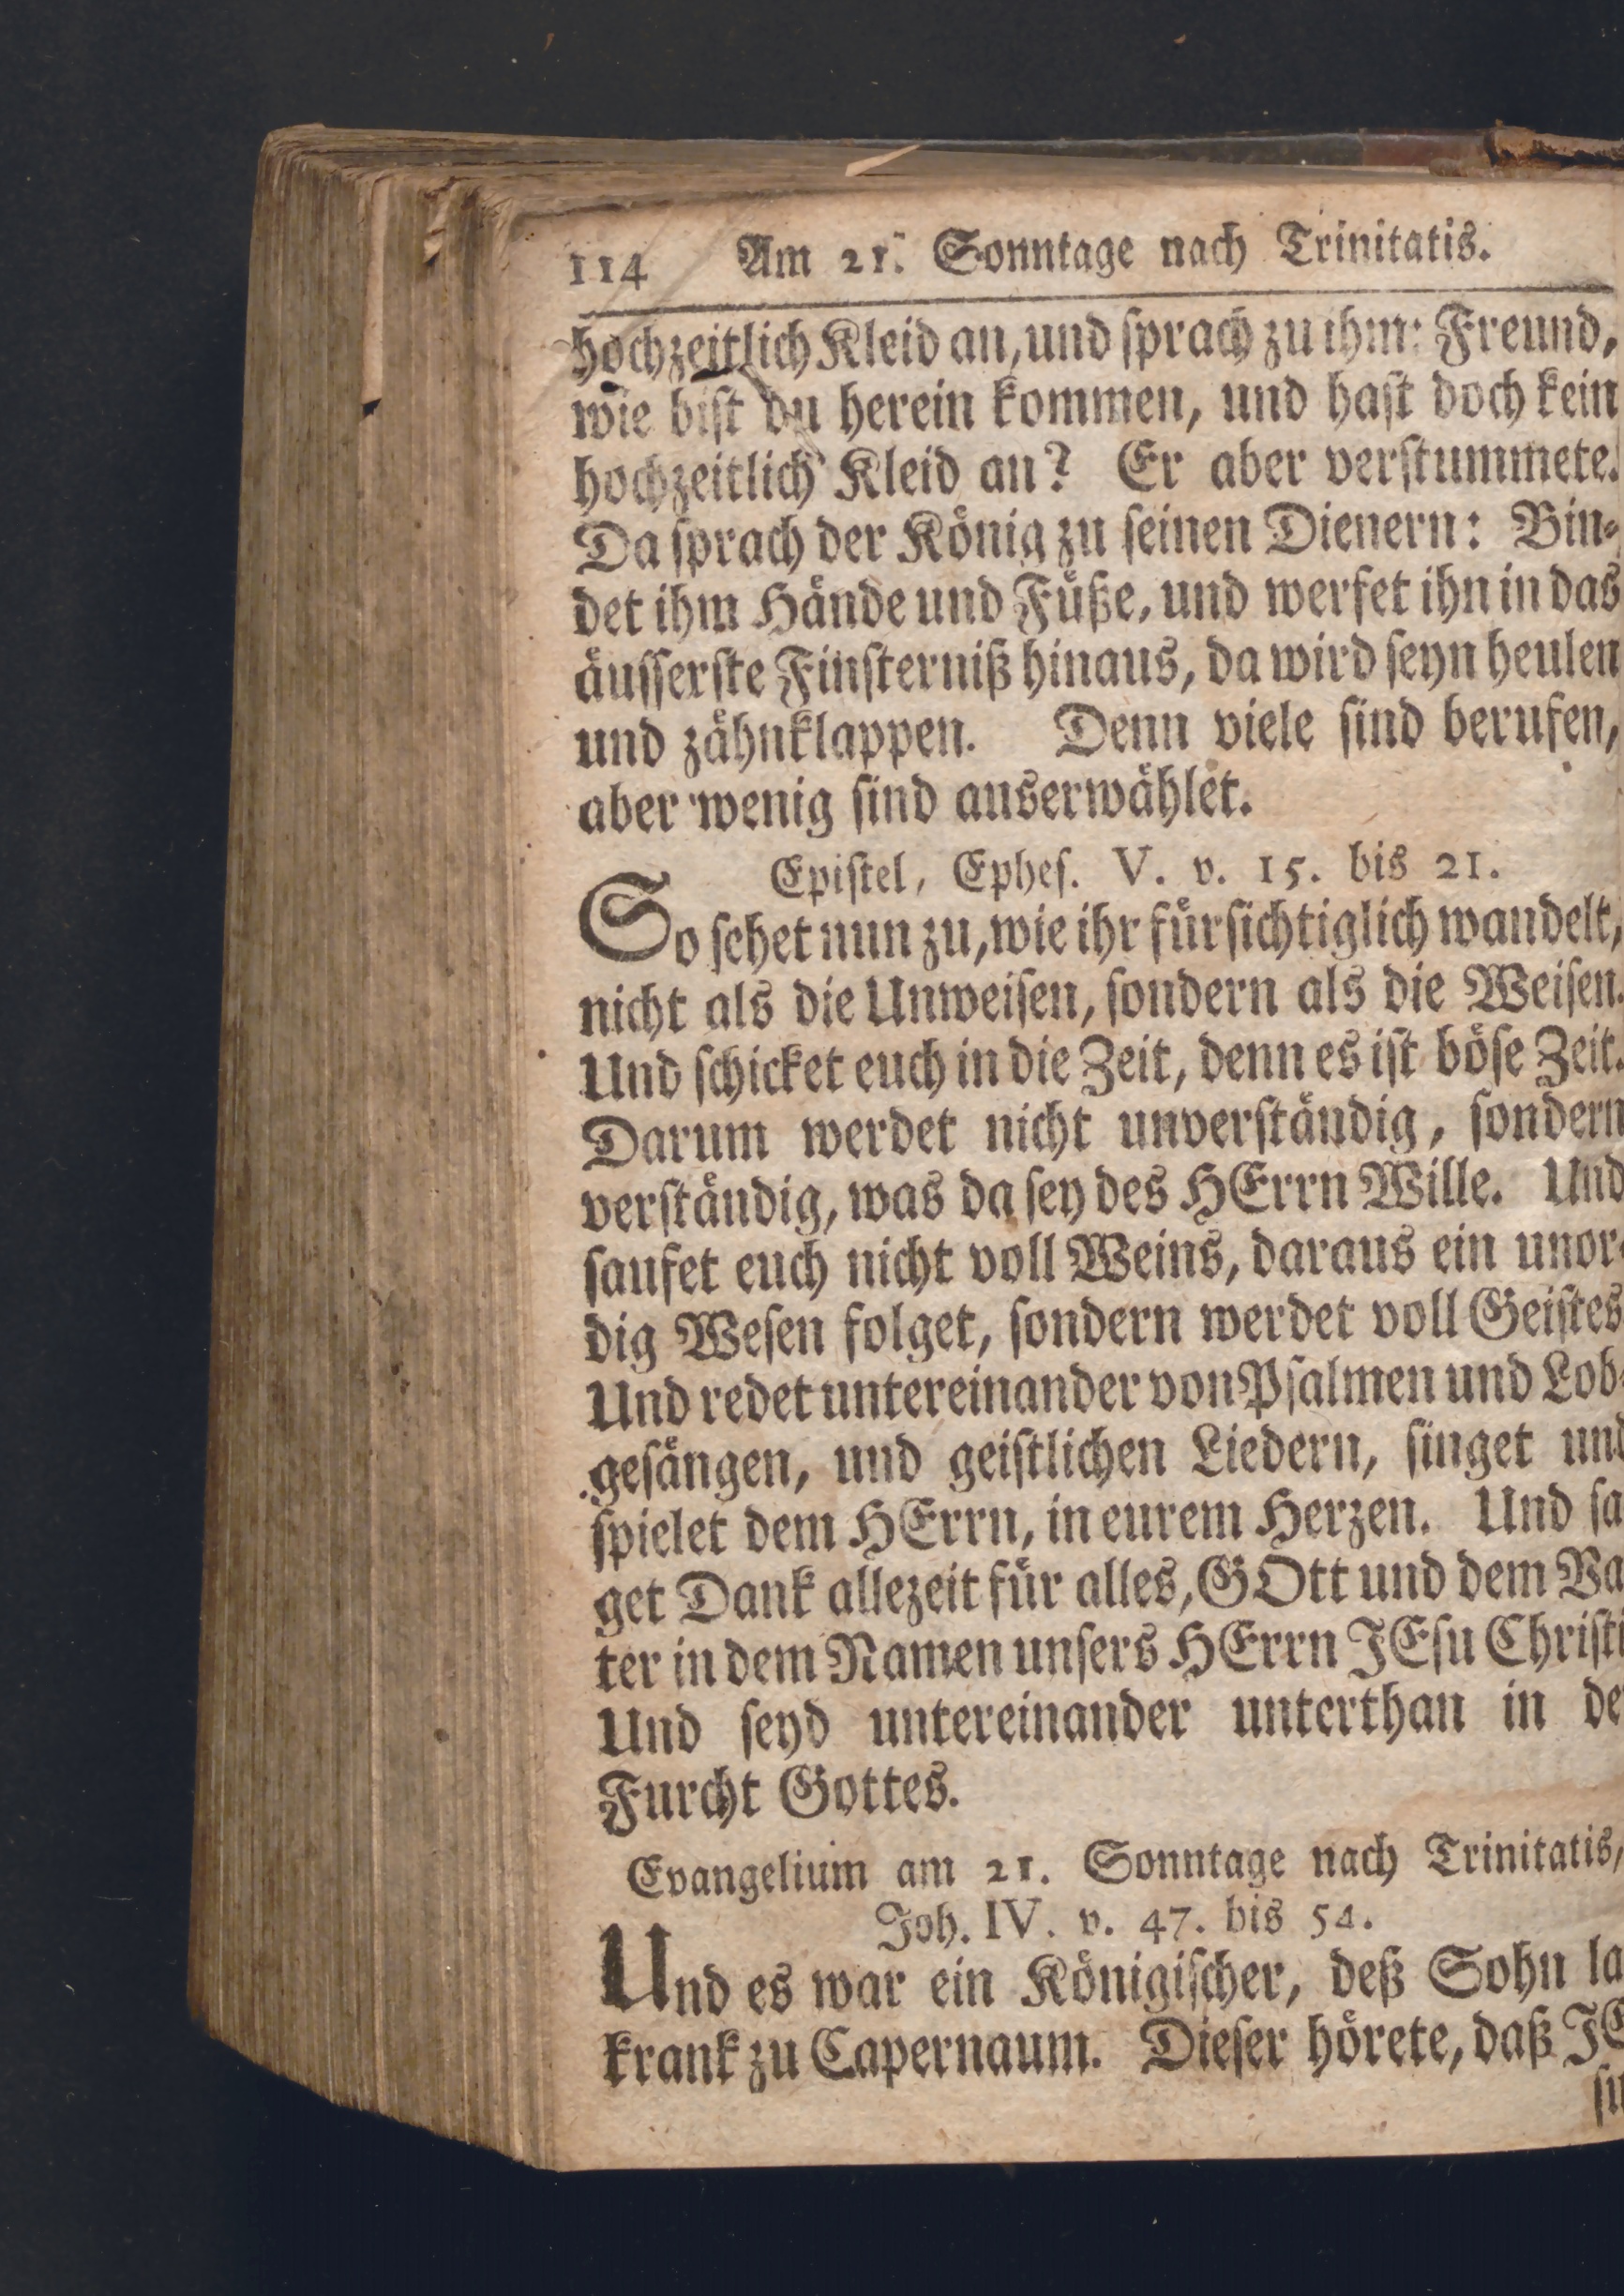 114 Am 21. Sonntage nach Trinitatis.
hochzeitlich Kleid an, und ſprach zu ihm: Freund,
wie biſt du herein kommen, und haſt doch kein
hochzeitlich Kleid an? Er aber verſtummete.
Da ſprach der König zu ſeinen Dienern: Bin-
det ihm Hände und Füße, und werfet ihn in das
äuſſerſte Finſterniß hinaus, da wird ſeyn heulen
und zähnklappen. Denn viele ſind berufen,
aber wenig ſind auserwählet.
Epiſtel, Epheſ. V. v. 15. bis 21.
So ſehet nun zu, wie ihr fürſichtiglich wandelt,
nicht als die Unweiſen, ſondern als die Weiſen.
Und ſchicket euch in die Zeit, denn es iſt böſe Zeit.
Darum werdet nicht unverſtändig, ſondern
verſtändig, was da ſey des HErrn Wille. Und
ſaufet euch nicht voll Weins, daraus ein unor-
dig Weſen folget, ſondern werdet voll Geiſtes
Und redet untereinander von Pſalmen und Lob-
geſängen, und geiſtlichen Liedern, ſinget und
ſpielet dem HErrn, in eurem Herzen. Und ſa
get Dank allezeit für alles, GOtt und dem Va
ter in dem Namen unſers HErrn JEſu Chriſti
Und ſeyd untereinander unterthan in de
Furcht Gottes.
Evangelium am 21. Sonntage nach Trinitatis,
Joh. IV. v. 47. bis 54.
Und es war ein Königiſcher, deß Sohn la
krank zu Capernaum. Dieſer hörete, daß JE